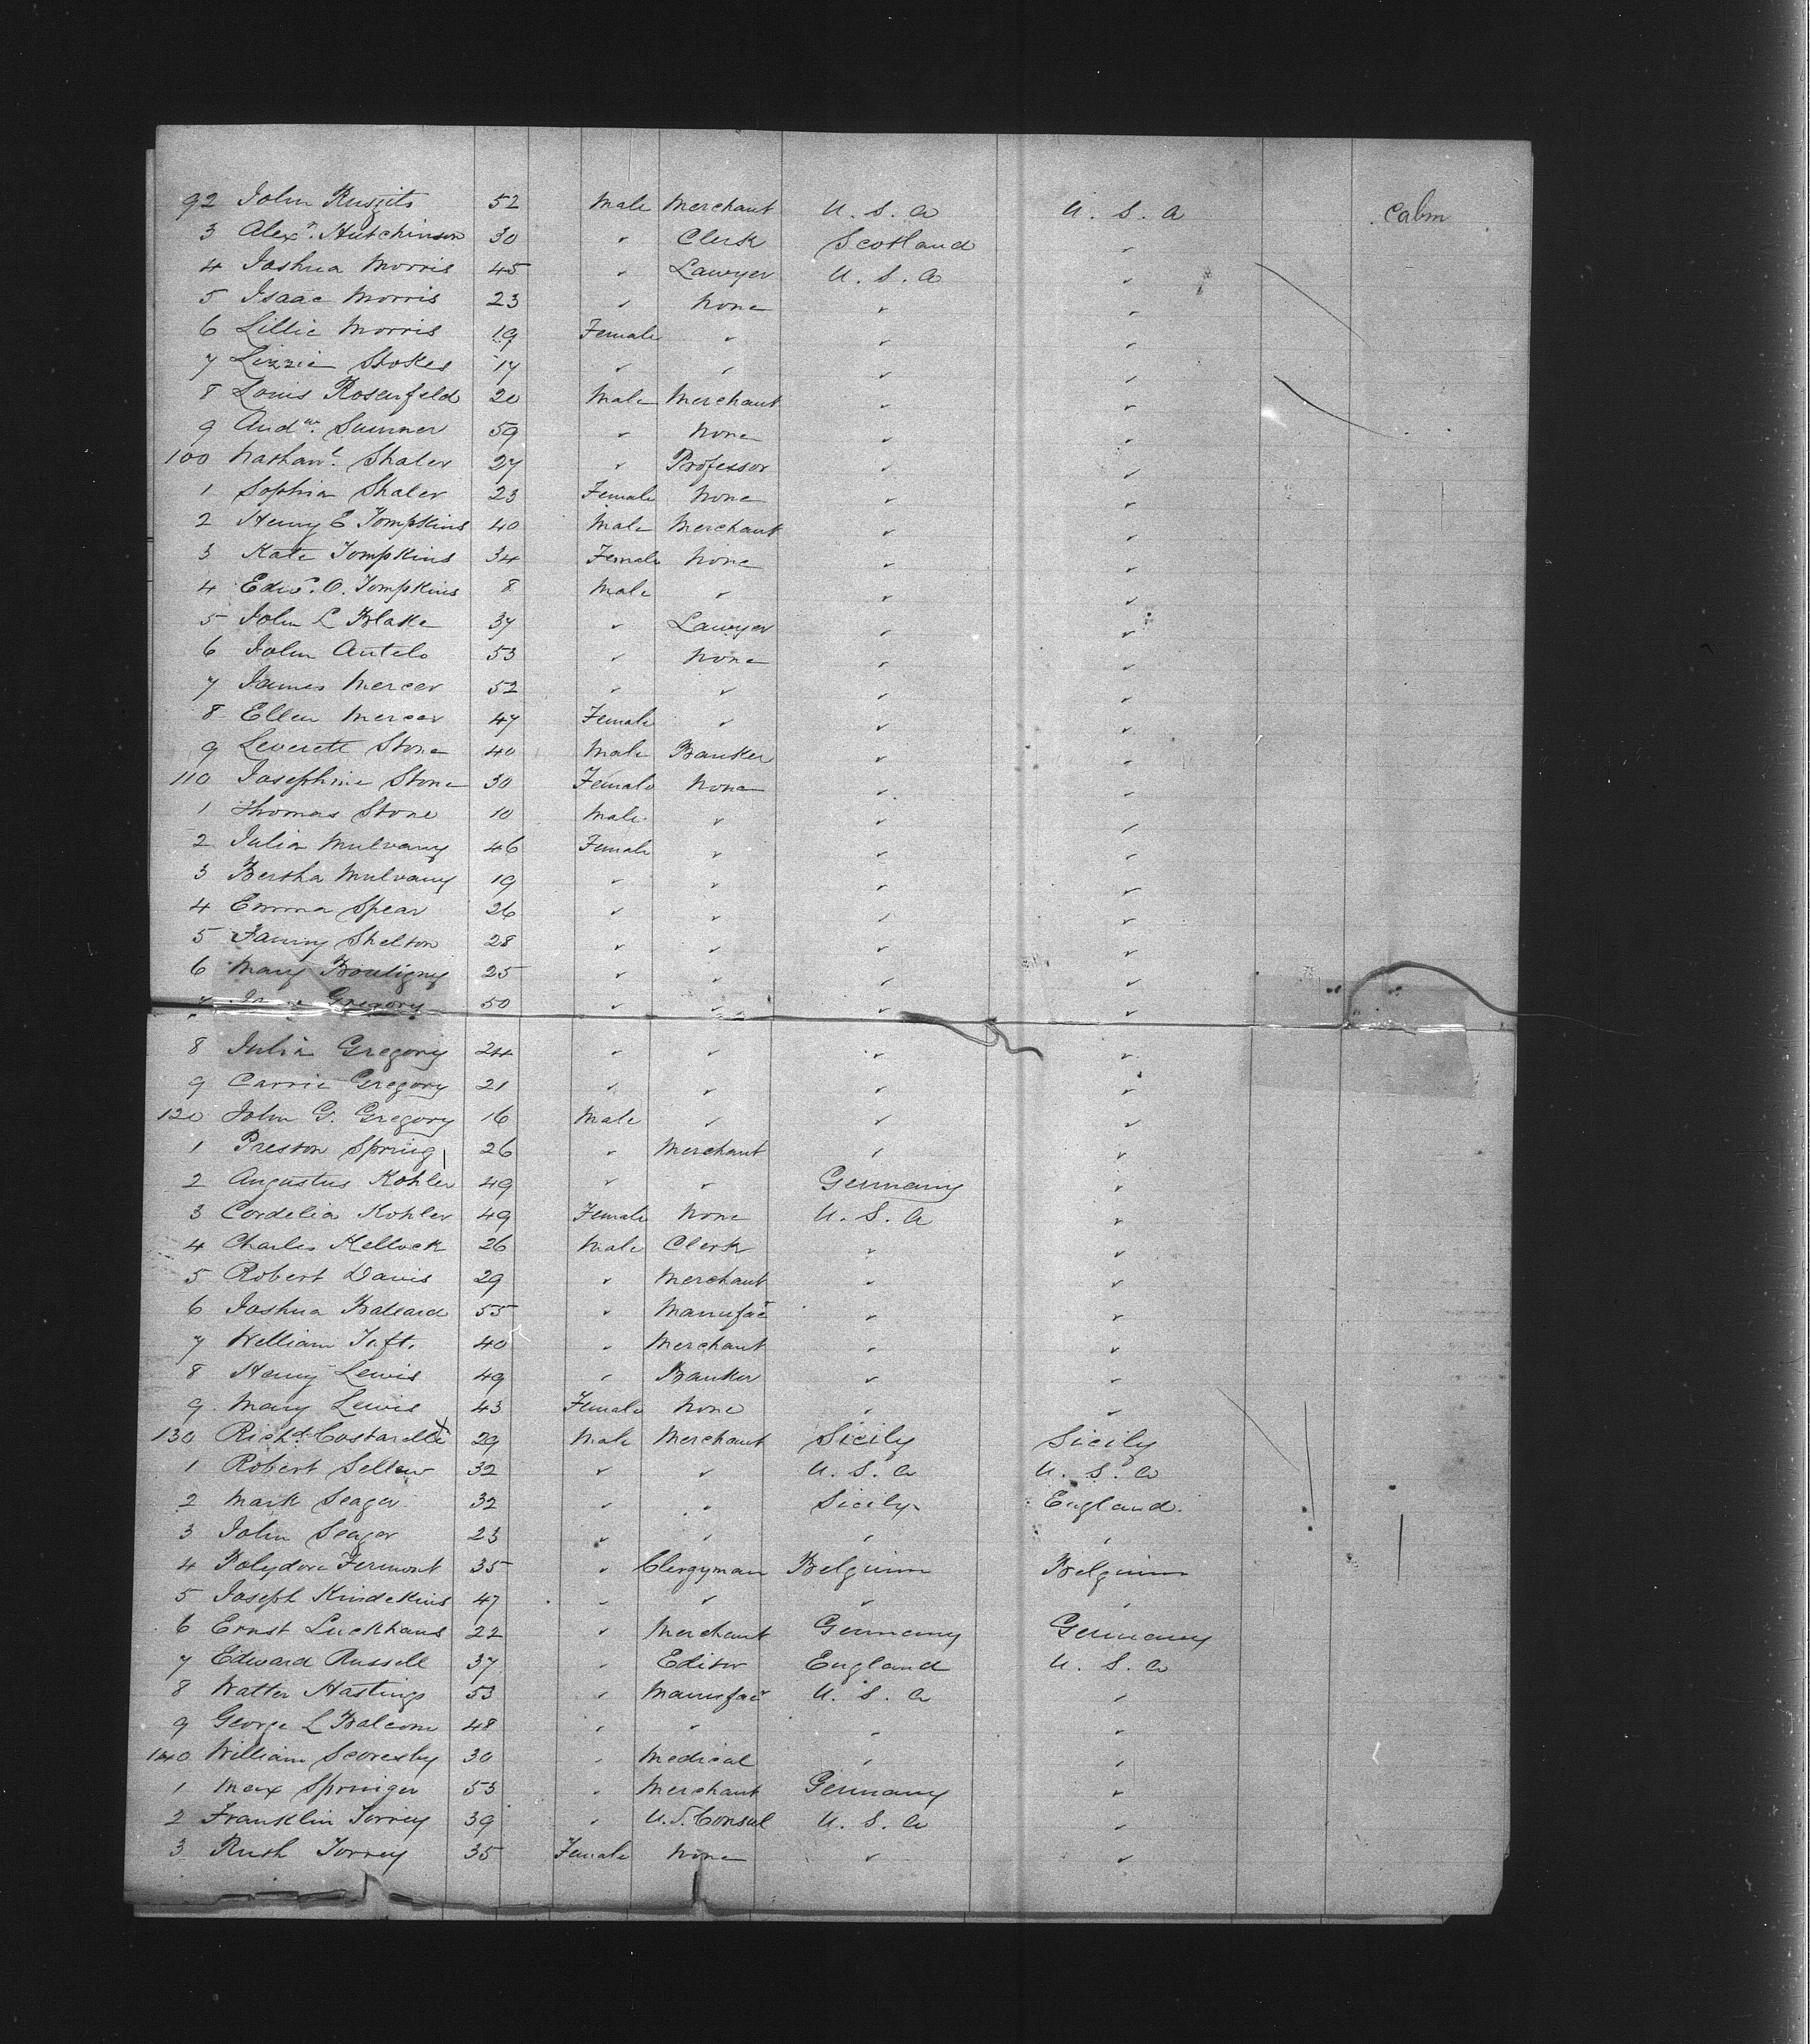 92 John 52 Male Merchant U. S. A U. S. A Cabin
3 Alexr. Hutchinson 30 " Clerk Scotland "
4 Joshua Morris 45 " Lawyer U. S. A "
5 Isaac Morris 23 " None " "
6 Lillie Morris 19 Female " " "
7 Lizzie Stokes 17 " " " "
8 Louis Rosenfeld 20 Male Merchant " "
9 Andw. Sumner 59 " None " "
100 Nathanl. Shaler 27 " Professor " "
1 Sophia Shaler 23 Female None " "
2 Henry E Tompkins 40 Male Merchant " "
3 Kate Tompkins 34 Female None " "
4 Edwd. O. Tompkins 8 Male " " "
5 John L Blake 37 " Lawyer " "
6 John Antelo 53 " None " "
7 James Mercer 52 " " " "
8 Ellen Mercer 47 Female " " "
9 Leverett Stone 40 Male Banker " "
110 Josephine Stone 30 Female None " "
1 Thomas Stone 10 Male " " "
2 Julia Mulvany 46 Female " " "
3 Bertha Mulvany 19 " " " "
4 Emma Spear 26 " " " "
5 Fanny Shelton 28 " " " "
6 Mary Bouligny 25 " " " "
7 Gregory 50 " " " "
8 Julia Gregory 24 " " " "
9 Carrie Gregory 21 " " " "
120 John G. Gregory 16 Male " " "
1 Preston Spring 26 " Merchant " "
2 Augustus Kohler 49 " " Germany "
3 Cordelia Kohler 49 Female None U. S. A "
4 Charles Kellock 26 Male Clerk " "
5 Robert Davis 29 " Merchant " "
6 Joshua Ballard 55 " Manufacr " "
7 William Taft. 40 " Merchant " "
8 Henry Lewis 49 " Banker " "
9 Mary Lewis 43 Female None " "
130 Richd. Costarelli 29 Male Merchant Sicily Sicily
1 Robert Sellew 32 " " U. S. A U. S. A
2 Mark Seager 32 " " Sicily England
3 John Seager 23 " " " "
4 Polydore Fermont 35 " Clergyman Belgium Belgium
5 Joseph Kindekins 47 " " " "
6 Ernst Luckhaus 22 " Merchant Germany Germany
7 Edward Russell 37 " Editor England U. S. A
8 Walter Hastings 53 " Manufacr U. S. A "
9 George L Balcom 48 " " " "
140 William Scoresby 30 " Medical " "
1 Max Springer 53 " Merchant Germany "
2 Franklin Torrey 39 " U.S. Consul U. S. A "
3 Ruth Torrey 35 Female None " "